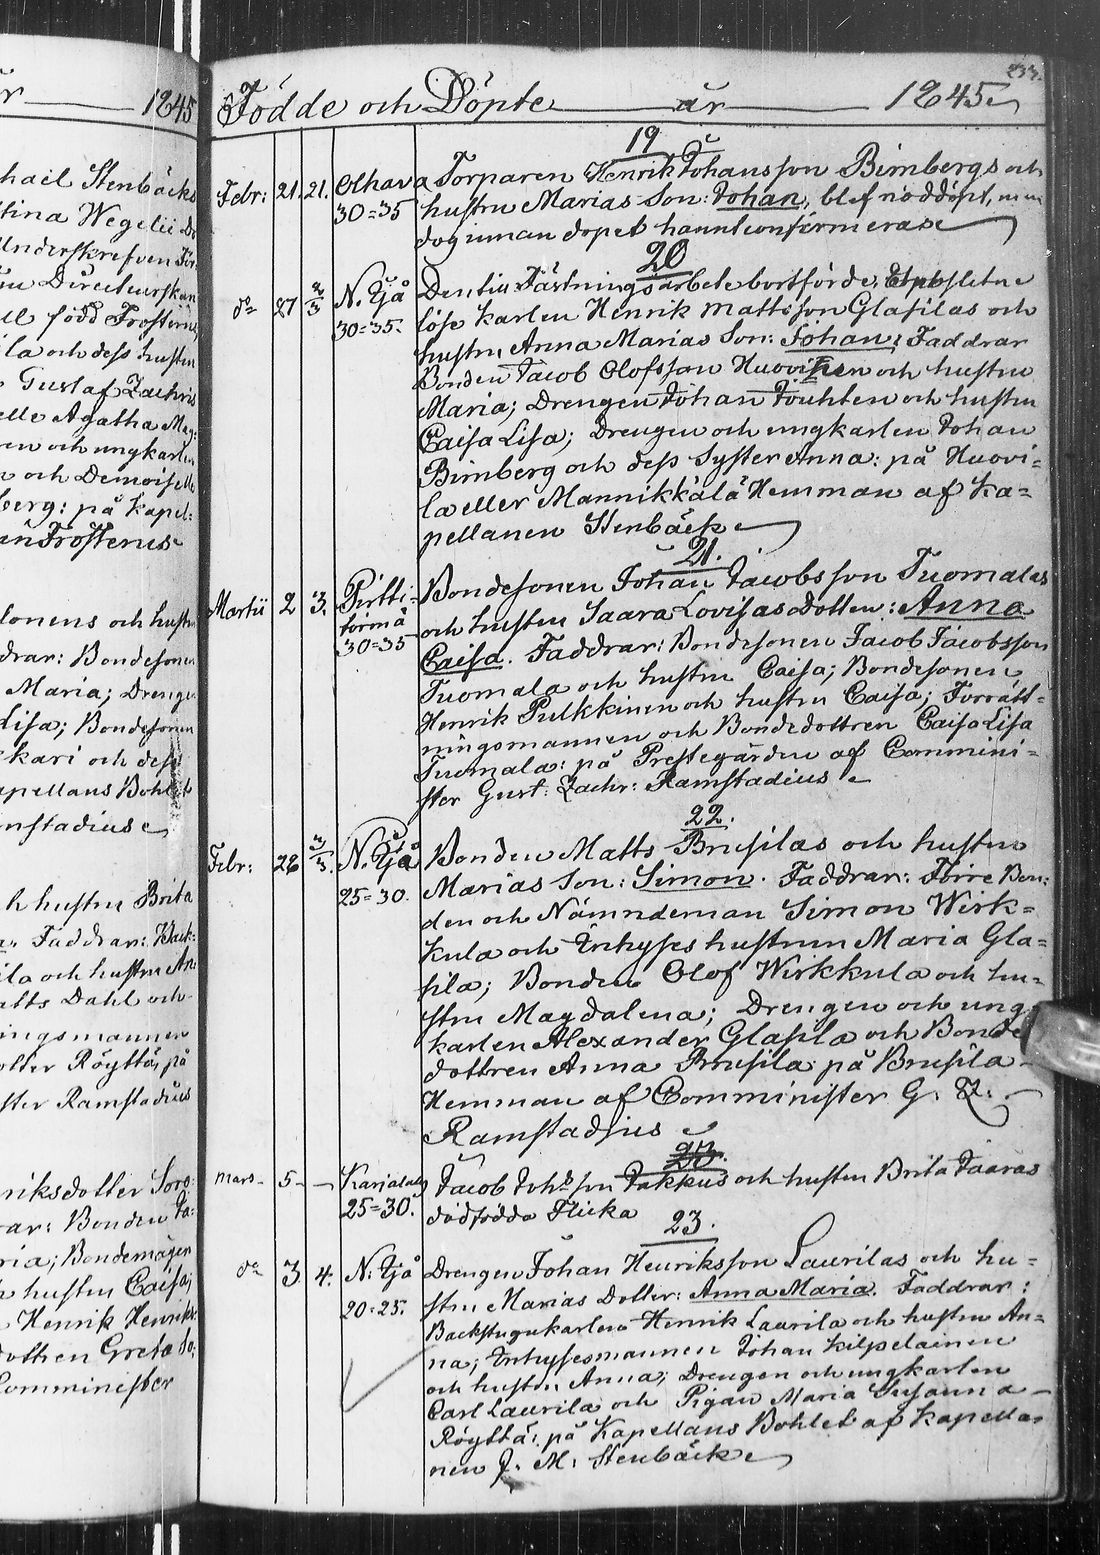 år 1845
hael Stenbäcks
stina Wegelii
Underskrefven
Directeurskan
född Frosterus
ila och dess hustru
Gustaf Zachris
elle Agatha
en och ungkarlen
och Demoiselle
berg: på Kapel:
an Frosterus
lonens och hustru
drar: Bondesonen
Maria; Drengen
Lisa; Bondesonen
kari och dess
apellans Bohlet
mstadius
hustru Brita
Faddrar: Back:
ila och hustru
atts Dahl och
ningsmannen
otter Röyttä, på
ster Ramstadius
riksdotter
rar: Bonden
ria; Bondemågen
hustru Caisa;
Henrik Henriks
dottren Greta
Comminister
233.
Födde och Döpte år 1845
19
Febr: 21. 21. Olhava Torparen Henrik Johansson Birnbergs och
30=35 hustru Marias Son: Johan, blef nöddöpt, men
dog innan dopet hannt confirmeras
20
do 27 2/3 N. Ijå Den till Fästningsarbete bortförde
30=35. löse karlen Henrik Mattsson Glasilas och
hustru Anna Marias Son: Johan; Faddrar
Bonden Jacob Olofsson Huovinen och hustru
Maria; Drengen Johan Touhten och hustru
Caisa Lisa; Drengen och ungkarlen Johan
Birnberg och dess Syster Anna: på Huovi=
la eller Mannikkälä Hemman af Ka=
pellanen Stenbäck
21.
Martii 2 3. Pirtti= Bondesonen Johan Jacobsson Tuomalas
törmä och hustru Saara Lovisas Dotter: Anna
30=35 Caisa. Faddrar: Bondesonen Jacob Jacobsson
Tuomala och hustru Caisa; Bondesonen
Henrik Pulkkinen och hustru Caisa; Förrätt=
ningsmannen och Bondedottren Caisa Lisa
Tuomala: på Prestegården af Commini=
ster Gust: Zachr: Ramstadius
22.
Febr: 26 3/3. N. Ijå Bonden Matts Brusilas och hustru
25=30. Marias Son: Simon. Faddrar: Förre Bon:
den och Nämndeman Simon Wirk=
kula och Inhyses hustrun Maria Gla=
sila; Bonden Olof Wirkkula och hu=
stru Magdalena; Drengen och ung
karlen Alexander Glasila och Bonde
dottren Anna Brusila på Brusila
Hemman af Comminister G. Z.
Ramstadius
23.
Mars 5 — Karjalan Jacob Johsson Takkus och hustru Brita Jaaras
25=30. dödfödda Flicka
23.
do 3 4. N: Ijå Drengen Johan Henriksson Laurilas och hu=
20=25. stru Marias Dotter: Anna Maria. Faddrar:
Backstugukarlen Henrik Laurila och hustru An=
na; Inhysesmannen Johan Kilpelainen
och hustru Anna; Drengen och ungkarlen
Carl Laurila och Pigan Maria Susanna
Röyttä: på Kapellans Bohlet af Kapella=
nen J. M: Stenbäck